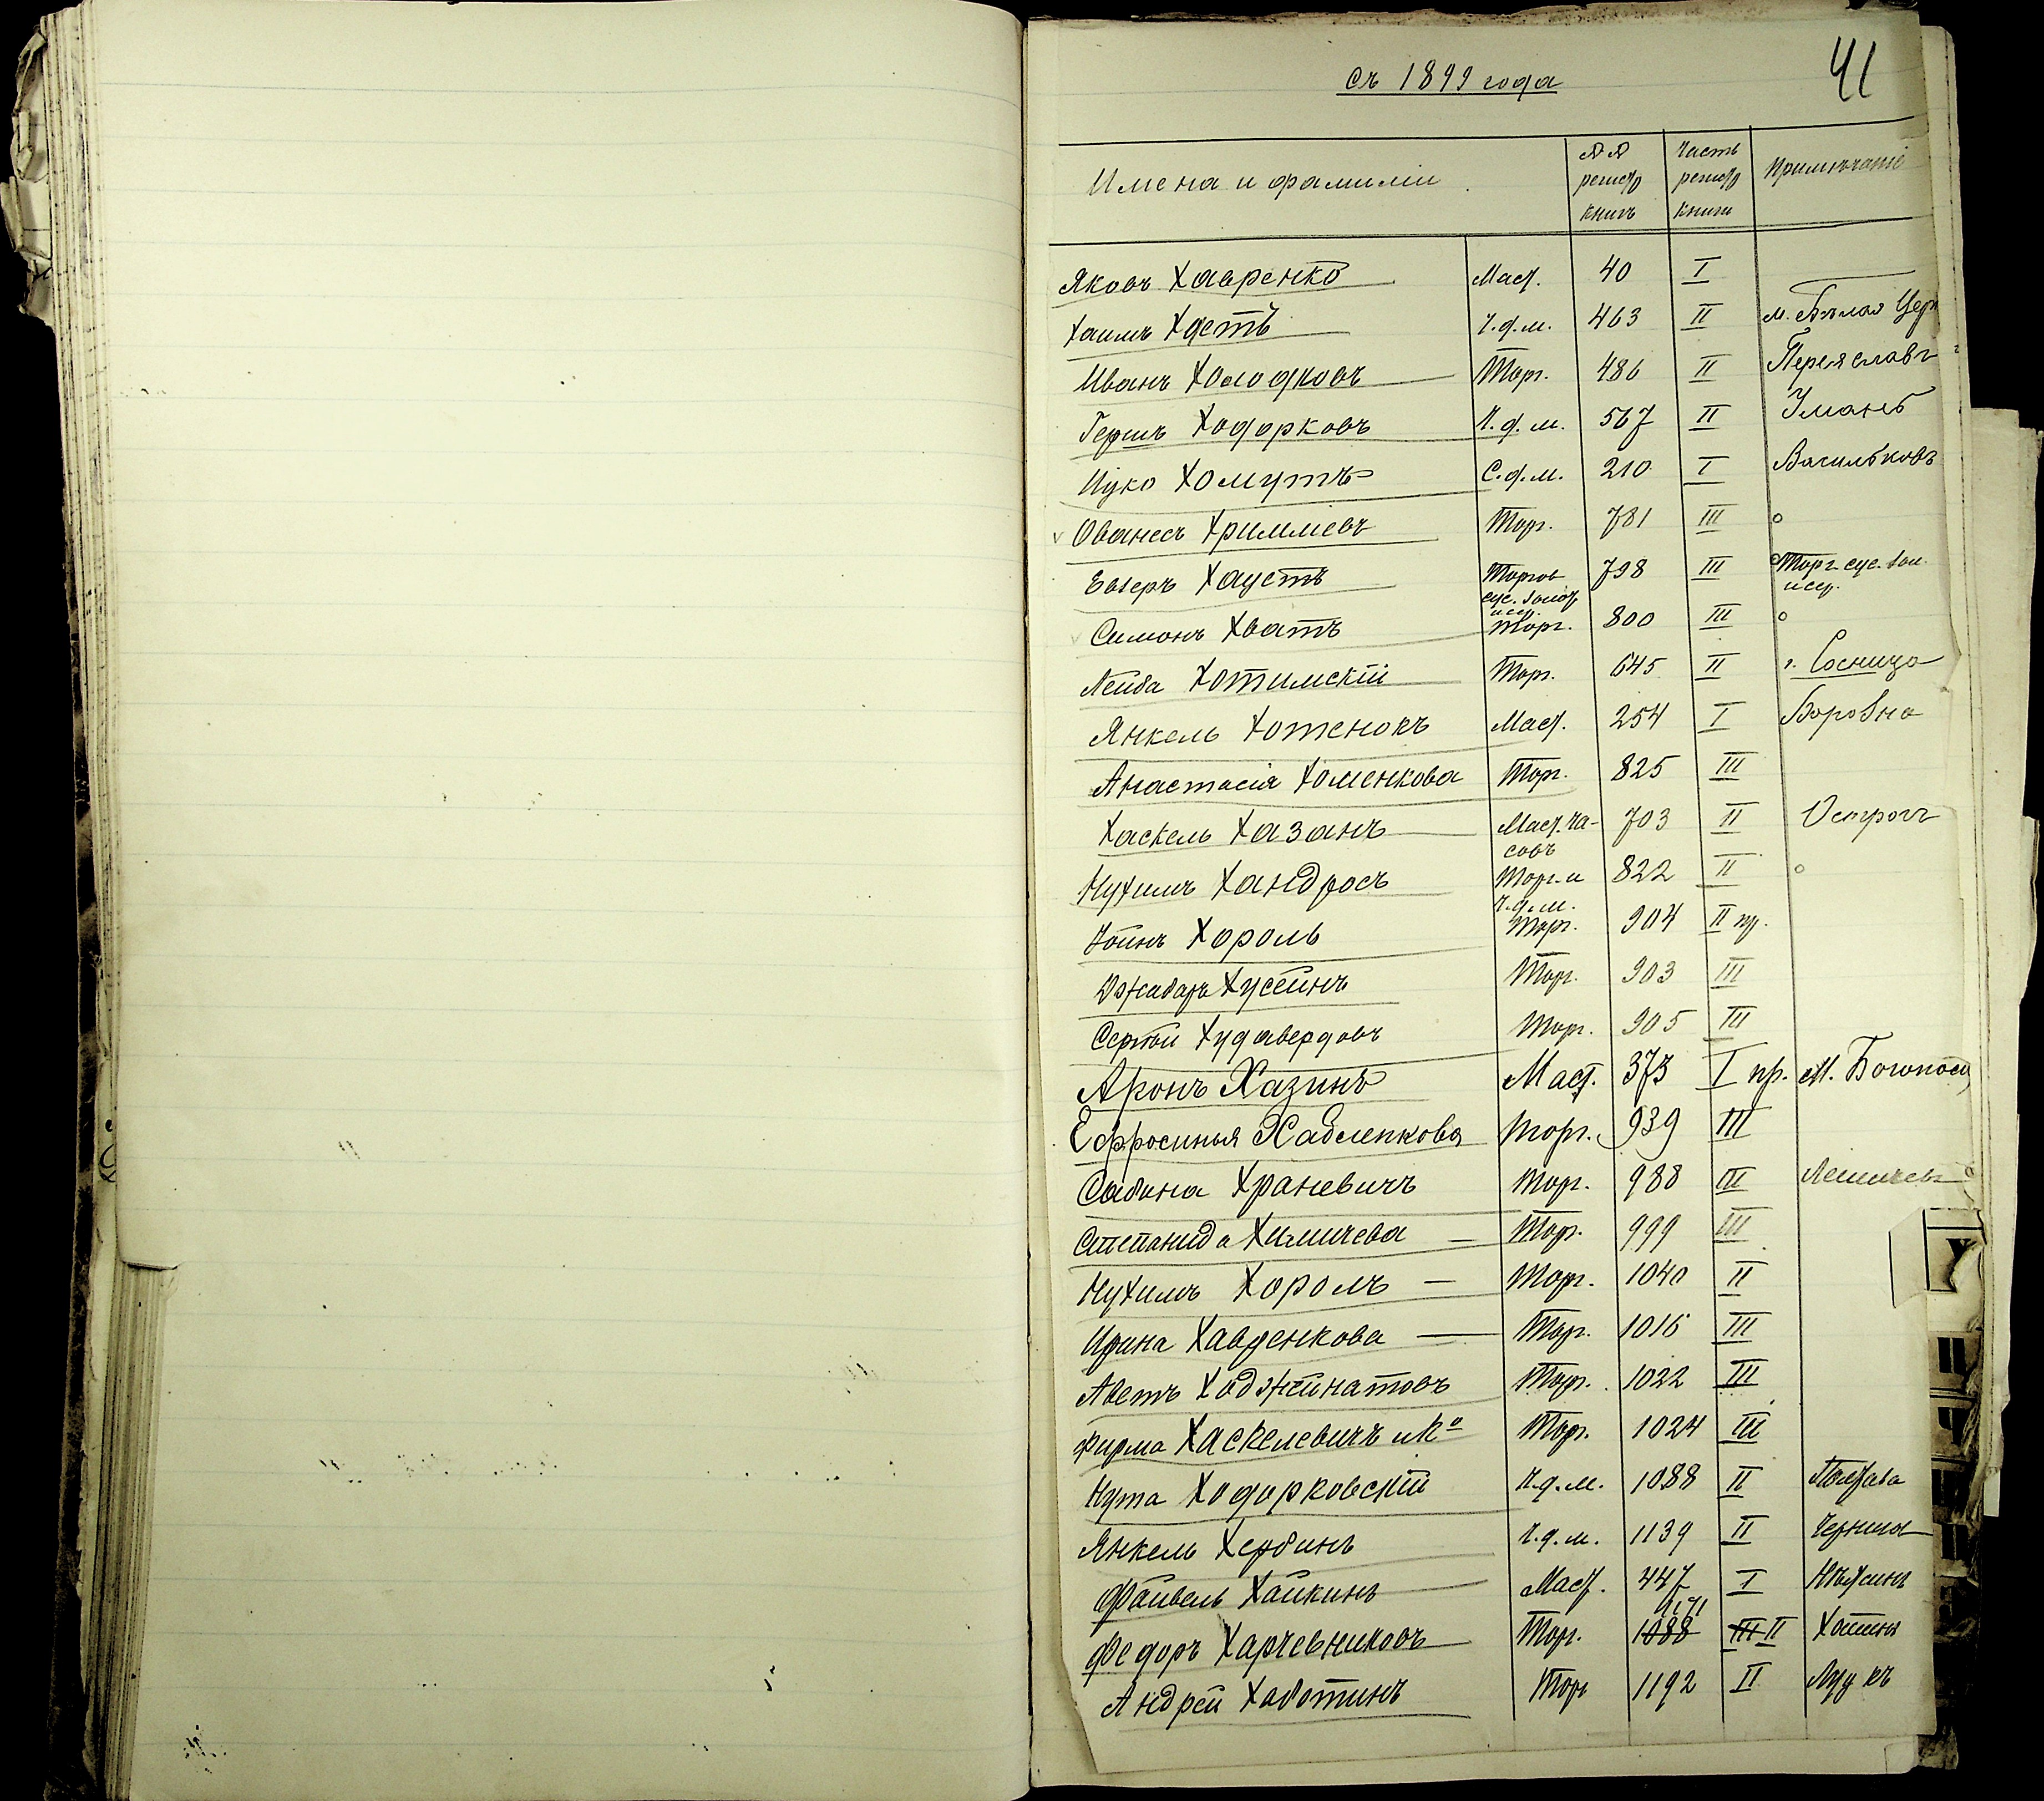 съ 1899 года
41
Имена и фамиліи
№№ регистр книгъ
Часть регистр книги
Примѣчаніе
Яковъ Хавренко Маст. 40 I
Хаимъ Хаетъ Ч.д.м. 463 II м. Бѣлая Церк
Иванъ Холодковъ Торг. 486 II Переяславъ
Гершъ Ходорковъ Ч.д.м. 567 II Умань
Ицко Хомутъ С.д.м. 210 I Васильковъ
Ованесъ Хримліевъ Торг. 781 III
Евзеръ Хаустъ Торгов сус. золот. и сер. 798 III Торг сус. зол. и сер.
Симонъ Хватъ Торг. 800 III
Лейба Хотимскій Торг. 645 II г. Сосница
Янкель Хотенокъ Маст. 254 I Боровна
Анастасія Хоменкова Торг. 825 III
Хаскель Хазанъ Маст. ча-
совъ 703 II Острогъ
Нухимъ Хандросъ Торг. и Ч.д.м. 822 II
Хоинъ Хороль Торг. 904 II пр.
Джабаръ Хусеинъ Торг. 903 III
Сергѣй Худавердовъ Торг. 905 III
Аронъ Хазинъ Маст. 373 I пр. М. Богопол
Ефросинья Хабленкова Торг. 939 III
Сабина Храневичъ Торг. 988 III
Степанида Химичева Торг. 999 III
Нухимъ Хороль Торг. 1040 II
Ирина Хавденкова Торг. 1016 III
Аветъ Ходжинатовъ Торг. 1022 III
Фирма Хаскелевичъ и Ко Торг. 1024 III
Нута Ходорковскій Ч.д.м. 1088 II Полтава
Янкель Хербинъ Ч.д.м. 1139 II
Файвель Хайкинъ Маст. 447 I Нѣжинъ
Федоръ Харчевниковъ Торг. 1088 1171 III II Хотинъ
Андрей Хаботинъ Торг 1192 II Луцкъ